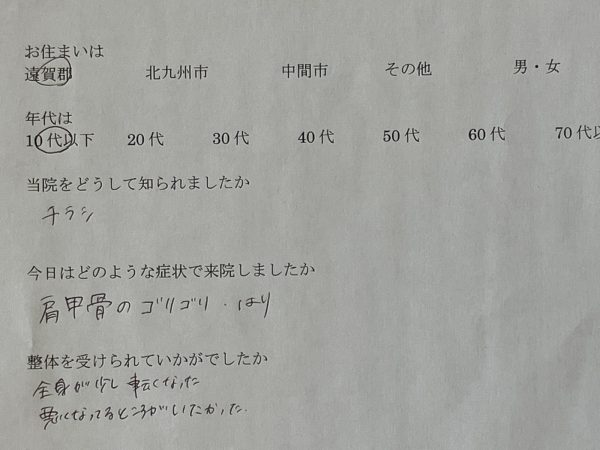 お住まいは
遠賀郡 北九州市 中間市 その他 男・女
年代は
10代以下 20代 30代 40代 50代 60代 70代以
当院をどうして知られましたか
チラシ
今日はどのような症状で来院しましたか
肩甲骨のゴリゴリ・はり
整体を受けられていかがでしたか
全身が少し転くなった
悪くなってるところがいたかった.